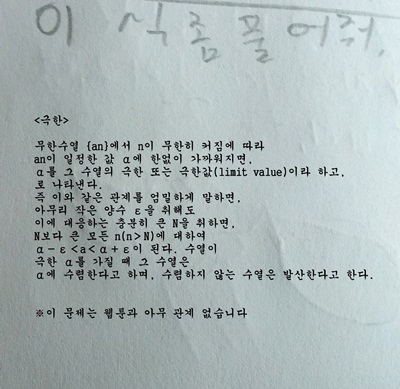 이 식 좀 풀어줘.
<극한>
무한수열 {an}에서 n이 무한히 커짐에 따라
an이 일정한 값 α에 한없이 가까워지면,
α를 그 수열의 극한 또는 극한값(limit value)이라 하고,
로 나타낸다.
즉 이와 같은 관계를 엄밀하게 말하면,
아무리 작은 양수 ε을 취해도
이에 대응하는 충분히 큰 N을 취하면,
N보다 큰 모든 n(n>N)에 대하여
α-ε<a<α+ε이 된다. 수열이
극한 α를 가질 때 그 수열은
α에 수렴한다고 하며, 수렴하지 않는 수열은 발산한다고 한다.
※이 문제는 웹툰과 아무 관계 없습니다